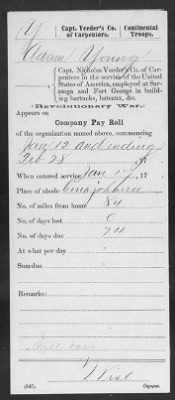 Y | Capt. Veeder's Co. of Carpenters. | Continental Troops.
Adam Young
Capt. Nicholas Veeder's Co. of Car-
penters in the service of the United
States of America, employed at Sar-
atoga and Fort George in build-
ing barracks, bateaux, &c.
Revolutionary War.
Appears on
Company Pay Roll
of the organization named above, commencing
Jan 12 and ending
Feb 28, 17
When entered service Jan 12, 17
Place of abode
No. of miles from home 84
No. of days lost 0
No. of days due 74
At what per day "
Sum due "
Remarks:
(547) Copyist.